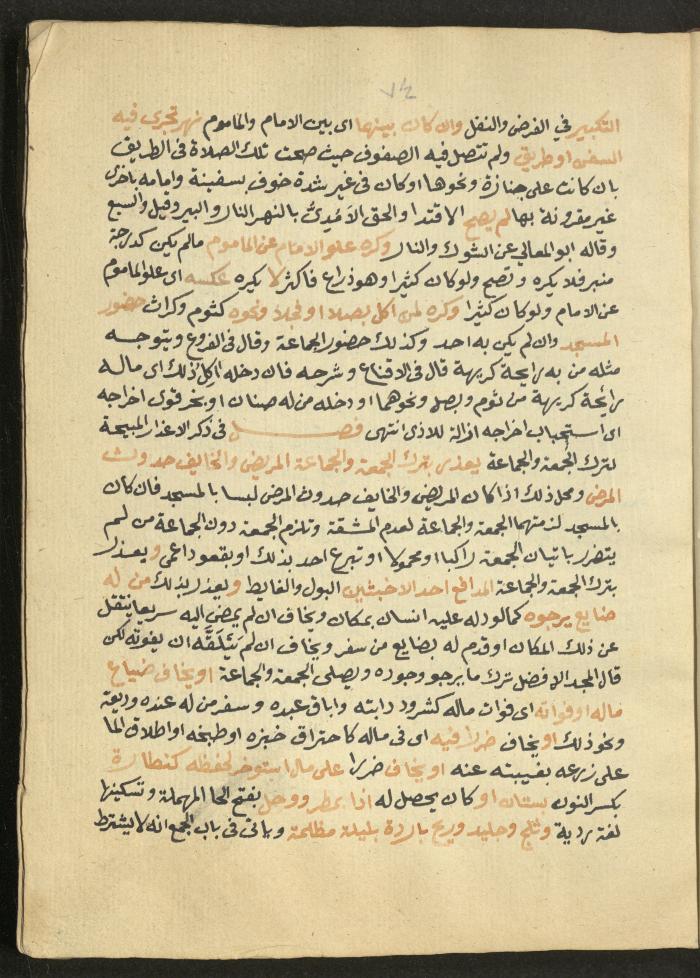 ٧٤
التكبير في الفرض والنفل وان كان بينهما اى بين الامام والماموم نهر تجرى فيه
السفن او طريق ولم تتصل فيه الصفوف حيث صحت تلك الصلاة فى الطريق
بان كانت على جنازة ونحوها او كان فى غير شدة خوف بسفينة وامامه باخرى
غير مقرونة بها لم يصح الاقتدا والحق الآمدي بالنهر النار والبير وقيل والسبع
وقاله ابو المعالي عن الشوك والنار وكره علو الامام عن الماموم مالم يكن كدرجة
منبر فلا يكره وتصح ولو كان كثيرا وهو ذراع فاكثر لا يكره عكسه اى علو الماموم
عن الامام ولو كان كثيرا وكره لمن اكل بصلا او فجلا ونحوه كثوم وكراث حضور
المسجد وان لم يكن به احد وكذلك حضور الجماعة وقال فى الفروع ويتوجه
مثله من به رايحة كريهة قال فى الاقناع وشرحه فان دخله اكل ذلك اى ماله
رائحة كريهة من ثوم وبصل ونحوهما او دخله من له صنان او بخر قوى اخراجه
اى استحباب اخراجه ازالة للاذى انتهى فصل فى ذكر الاعذار المبيحة
لترك الجمعة والجماعة يعذر بترك الجمعة والجماعة المريض والخايف حدوث
المرض ومحل ذلك اذا كان المريض والخايف حدوث المرض ليسا بالمسجد فان كان
بالمسجد لزمتهما الجمعة والجماعة لعدم المشقة وتلزم الجمعة دون الجماعة من لم
يتضرر باتيان الجمعة راكبا او محمولا او تبرع احد بذلك او بقعود اعمى ويعذر
بترك الجمعة والجماعة المدافع احد الاخبثين البول والغايط ويعذر بذلك من له
ضايع يرجوه كما لو دله عليه انسان بمكان ويخاف ان لم يمض اليه سريعا ينتقل
عن ذلك المكان او قدم له بضايع من سفر ويخاف ان لم يتلقه ان يفوته لكن
قال المجد الافضل ترك ما يرجو وجوده ويصلى الجمعة والجماعة او يخاف ضياع
ماله او فواته اى فوات ماله كشرود دابته واباق عبده وسفر من له عنده وديعة
ونحو ذلك او يخاف ضررا فيه اى فى ماله كاحتراق خبزه او طبخه او اطلاق الما
على زرعه بغيبته عنه او يخاف ضررا على مال استوجر لحفظه كنطارة
بكسر النون بستان او كان يحصل له اذا بمطر ووحل بفتح الحا المهملة وتسكينها
لغة ردية وثلج وجليد وريح باردة بليلة مظلمة وياتى فى باب الجمع انه لا يشترط